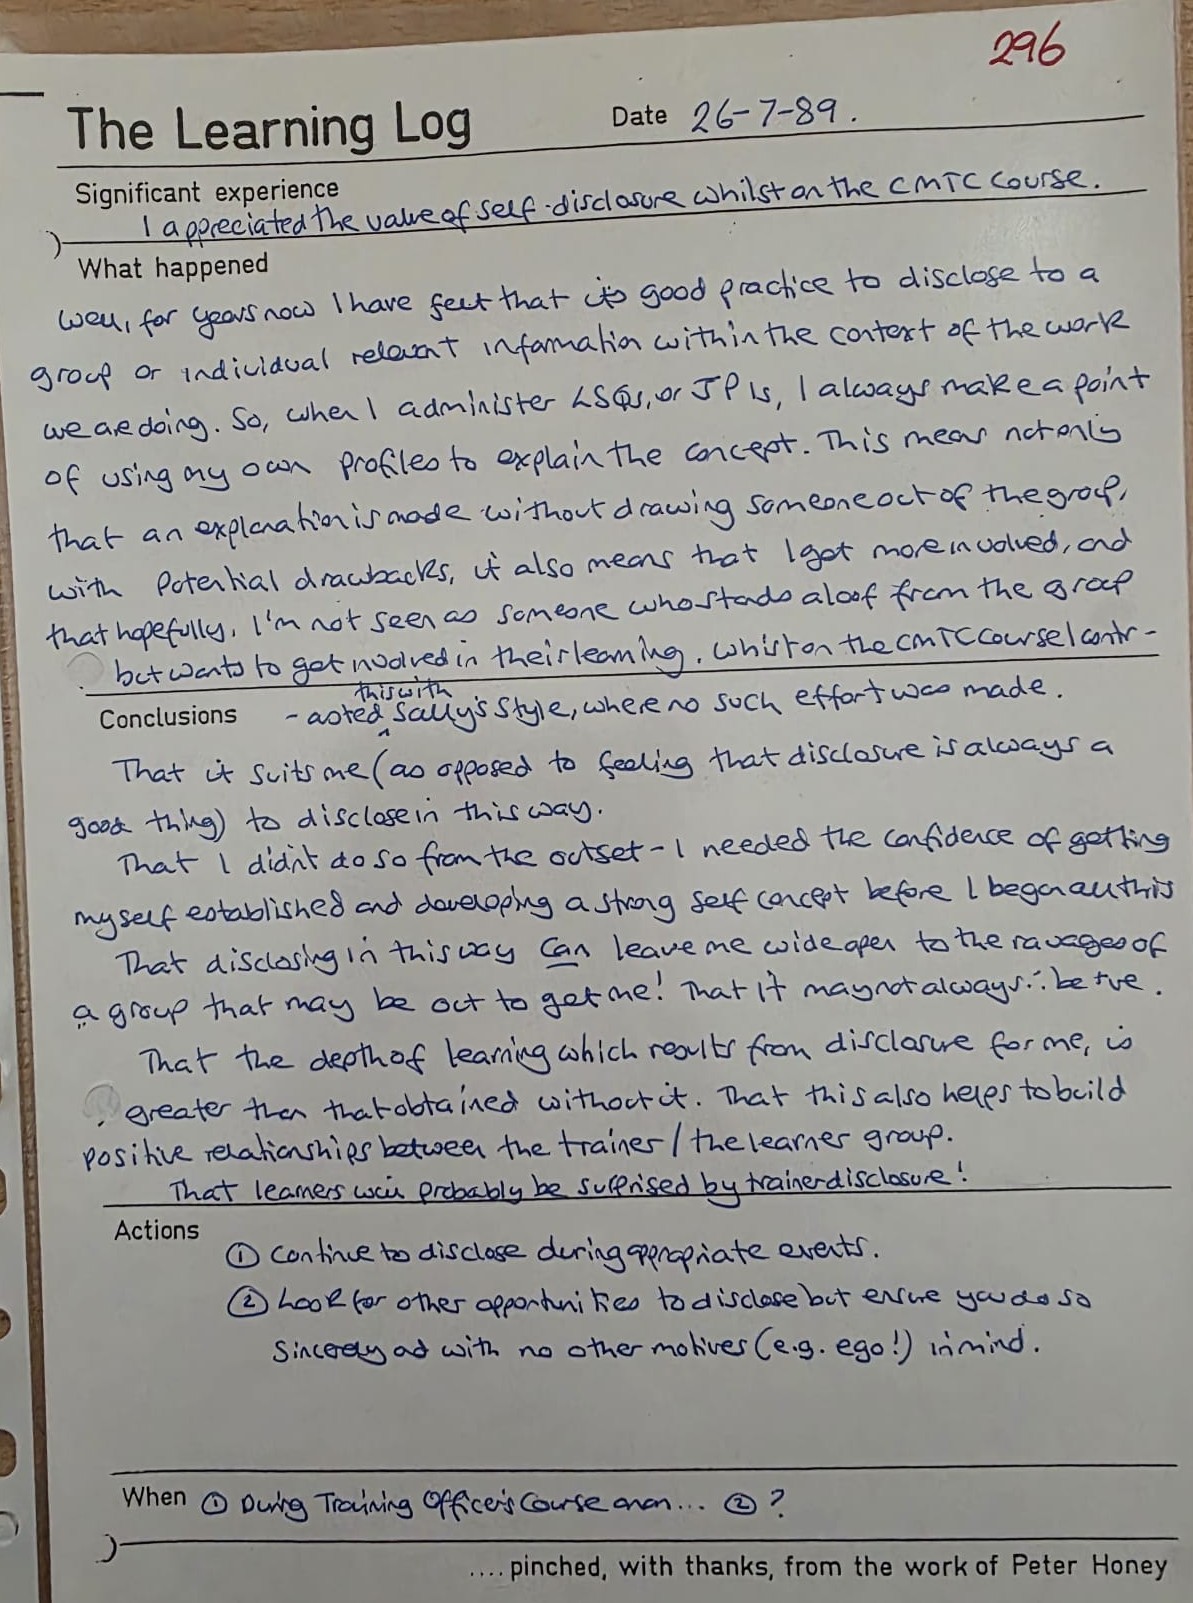 296
The Learning Log
Date 26-7-89.
Significant experience
I appreciated the value of self-disclosure whilst on the CMTC course.
What happened
Well, for years now I have felt that it's good practice to disclose to a
group or individual relevant information within the context of the work
we are doing. So, when I administer LSQs, or JPIs, I always make a point
of using my own profiles to explain the concept. This means not only
that an explanation is made without drawing someone out of the group,
with potential drawbacks, it also means that I get more involved, and
that hopefully, I'm not seen as someone who stands aloof from the group
but wants to get involved in their learning. Whilst on the CMTC course I contr-
this with
Conclusions -asted ^ Sally's style, where no such effort was made.
That it suits me (as opposed to feeling that disclosure is always a
good thing) to disclose in this way.
That I didn't do so from the outset - I needed the confidence of getting
myself established and developing a strong self concept before I began all this
That disclosing in this way can leave me wide open to the ravages of
a group that may be out to get me! That it may not always ∴ be +ve.
That the depth of learning which results from disclosure for me, is
greater than that obtained without it. That this also helps to build
positive relationships between the trainer / the learner group.
That learners will probably be surprised by trainer disclosure!
Actions
① Continue to disclose during appropriate events.
② Look for other opportunities to disclose but ensure you do so
sincerely and with no other motives (e.g. ego!) in mind.
When ① During Training Officer's Course anon... ② ?
.... pinched, with thanks, from the work of Peter Honey